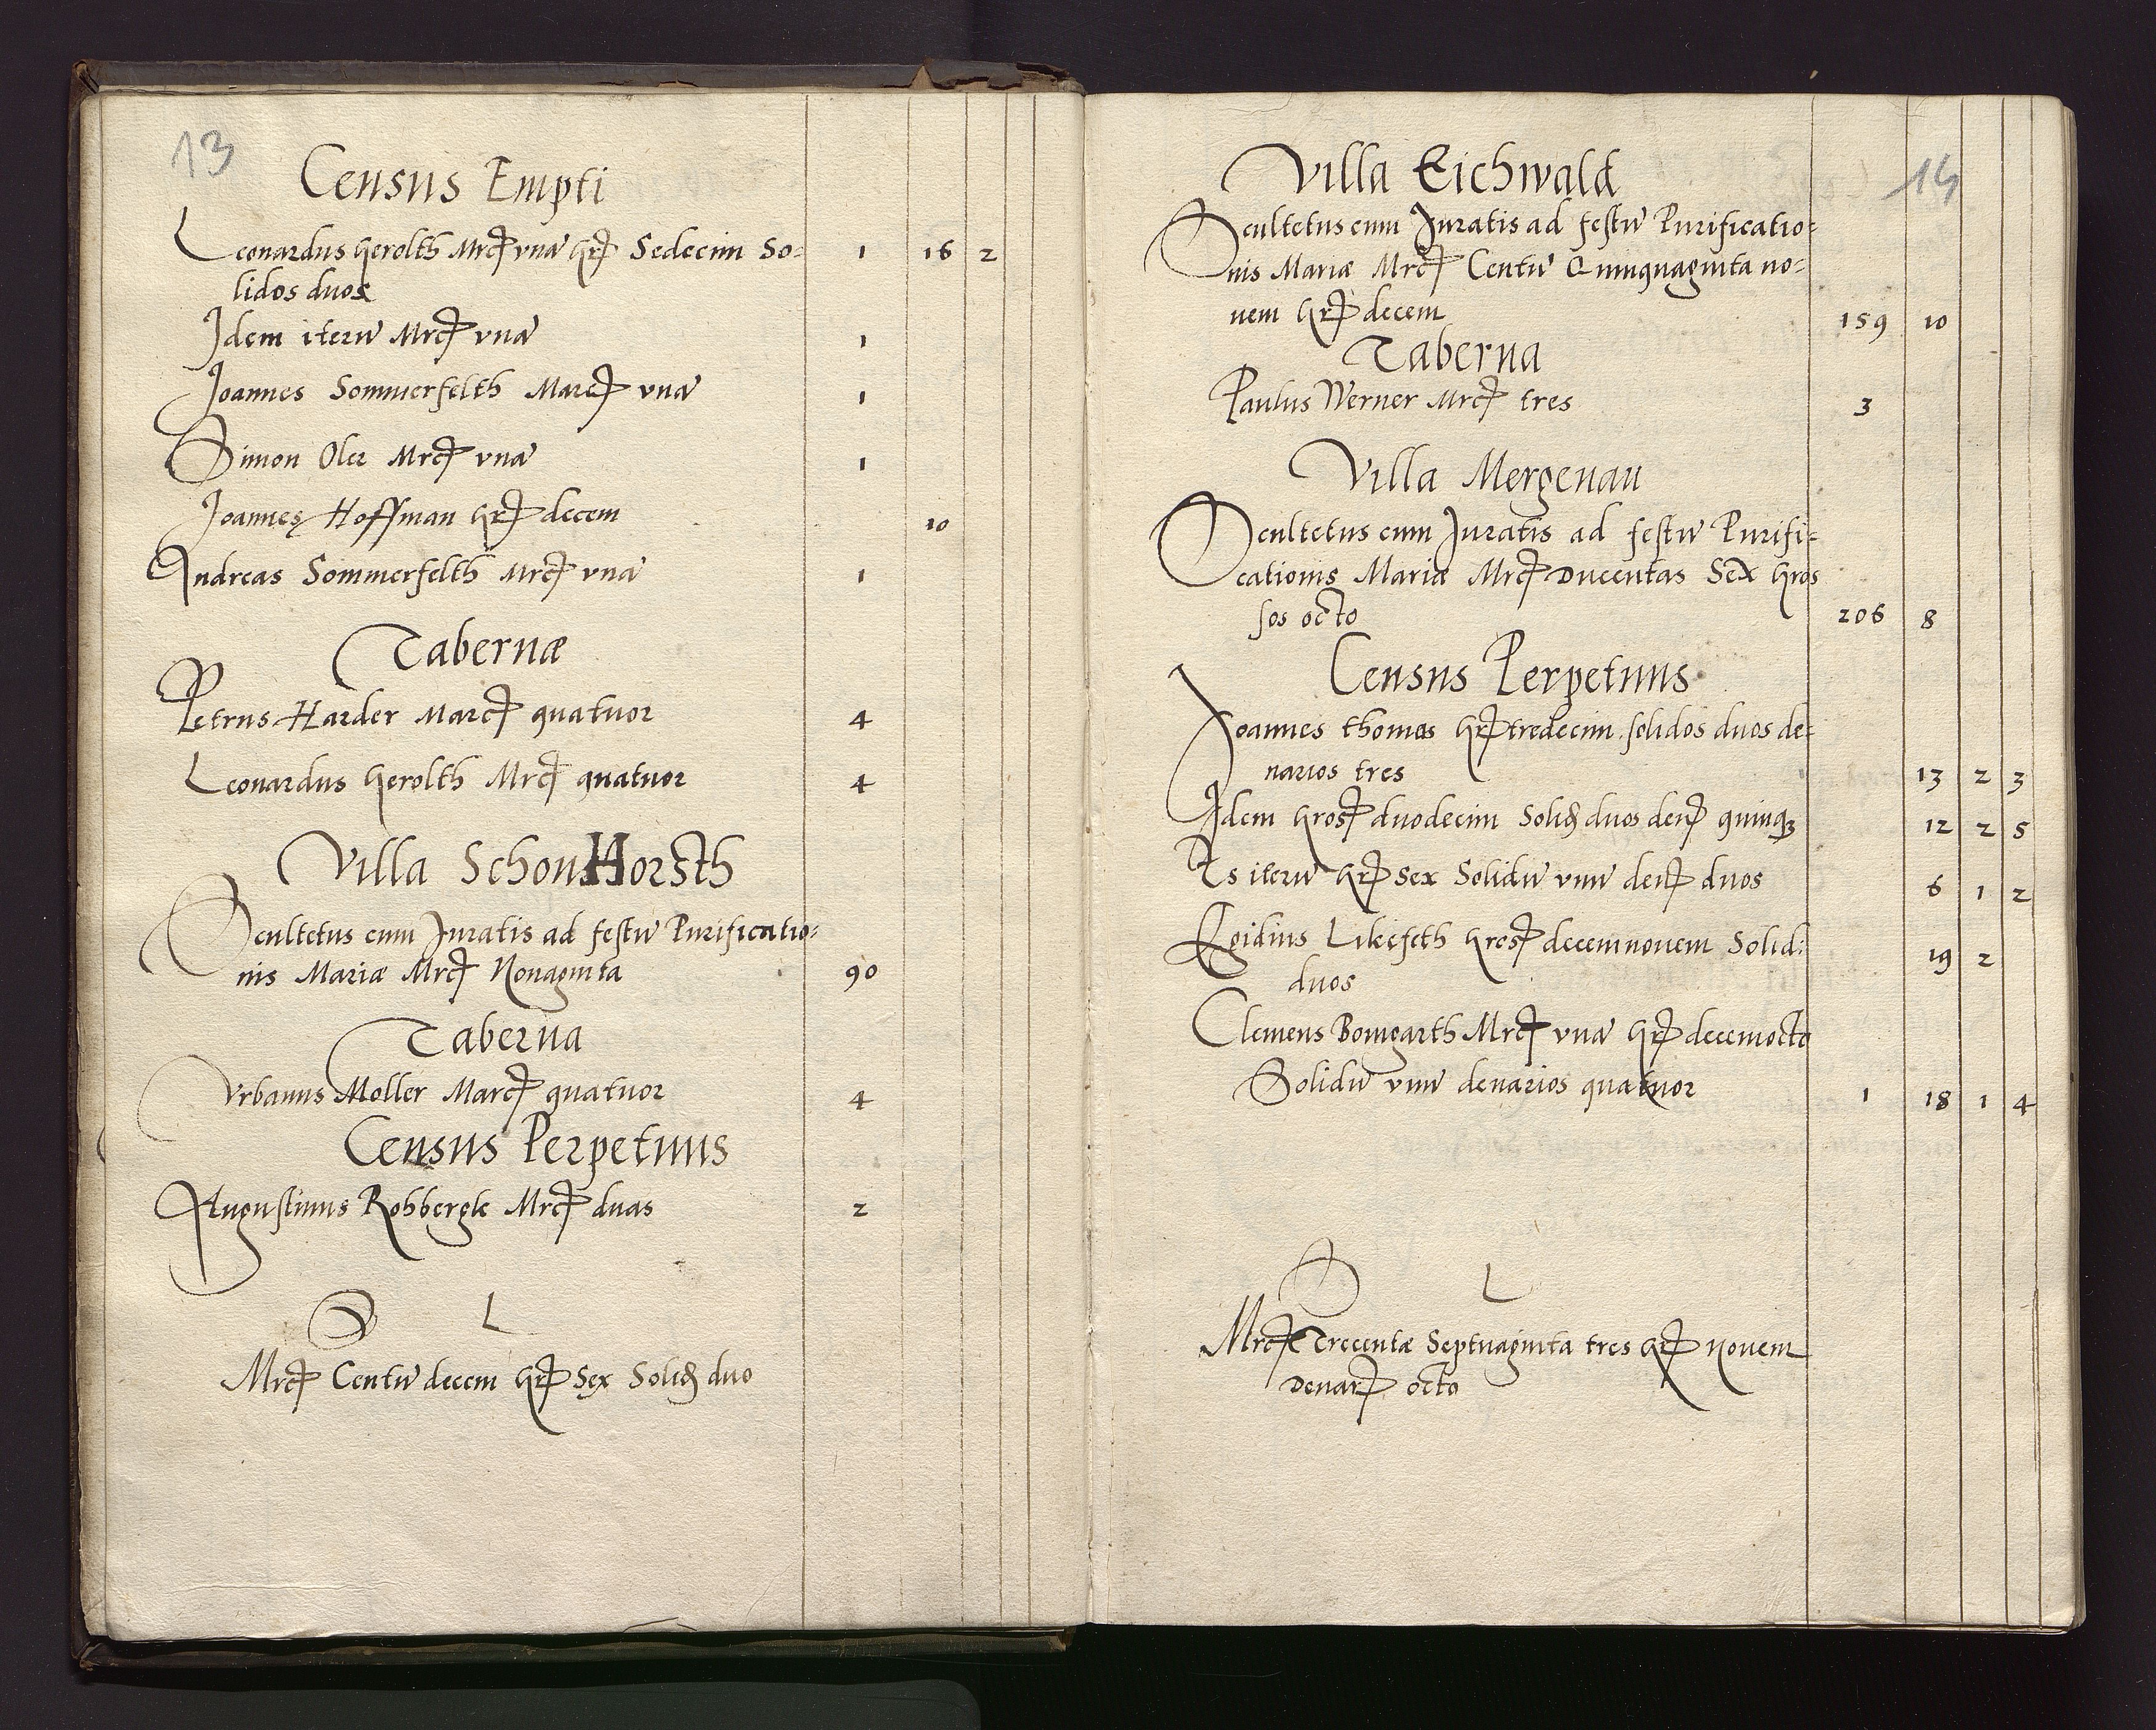 13
Census Empti
Leonardus Herolth Mrcϟ vnā grϟ Sedecim So= 1 16 2
lidos duos
Idem iterū Mrcϟ vnā 1
Joannes Sommerfelth Marcϟ vnā 1
Simon Oler Mrcϟ vnā 1
Joannes Hoffman grϟ decem 10
Andreas Sommerfelth Mrcϟ vnā 1
Tabernæ
Petrus Harder Marcϟ quatuor 4
Leonardus Herolth Mrcϟ quatuor 4
Villa SchonsHorsth
Scultetus cum Juratis ad festū Purificatio=
nis Mariæ Mrcϟ Nonaginta 90
Taberna
Vrbanus Moller Marcϟ quatuor 4
Census Perpetuus
Augustinus Robbergk Mrcϟ duas 2
S L
Mrcϟ Centū decem grϟ Sex Solidϟ duo
14
Villa Eichwald
Scultetus cum Juratis ad festū Purificatio=
nis Mariæ Mrcϟ Centū Quinquaginta no=
uem grϟ decem 159 10
Taberna
Paulus Werner Mrcϟ tres 3
Villa Mergenau
Scultetus cum Juratis ad festū Purifi=
cationis Mariæ Mrcϟ Ducentas Sex gros
sos octo 206 8
Census Perpetuus
Joannes thomas grϟ tredecim solidos duos de=
narios tres 13 2 3
Idem grosϟ duodecim Solidϟ duos denϟ quinqꝫ 12 2 5
Is iterū grϟ Sex Solidū vnū denϟ duos 6 1 2
Egidius Likefeth grosϟ decemnouem Solid: 19 2
duos
Clemens Bomgarth Mrcϟ vnā grϟ decemocto
Solidū vnū denarios quatuor 1 18 1 4
S L
Mrcϟ Trecentæ Septuaginta tres grϟ Nouem
Denarϟ octo